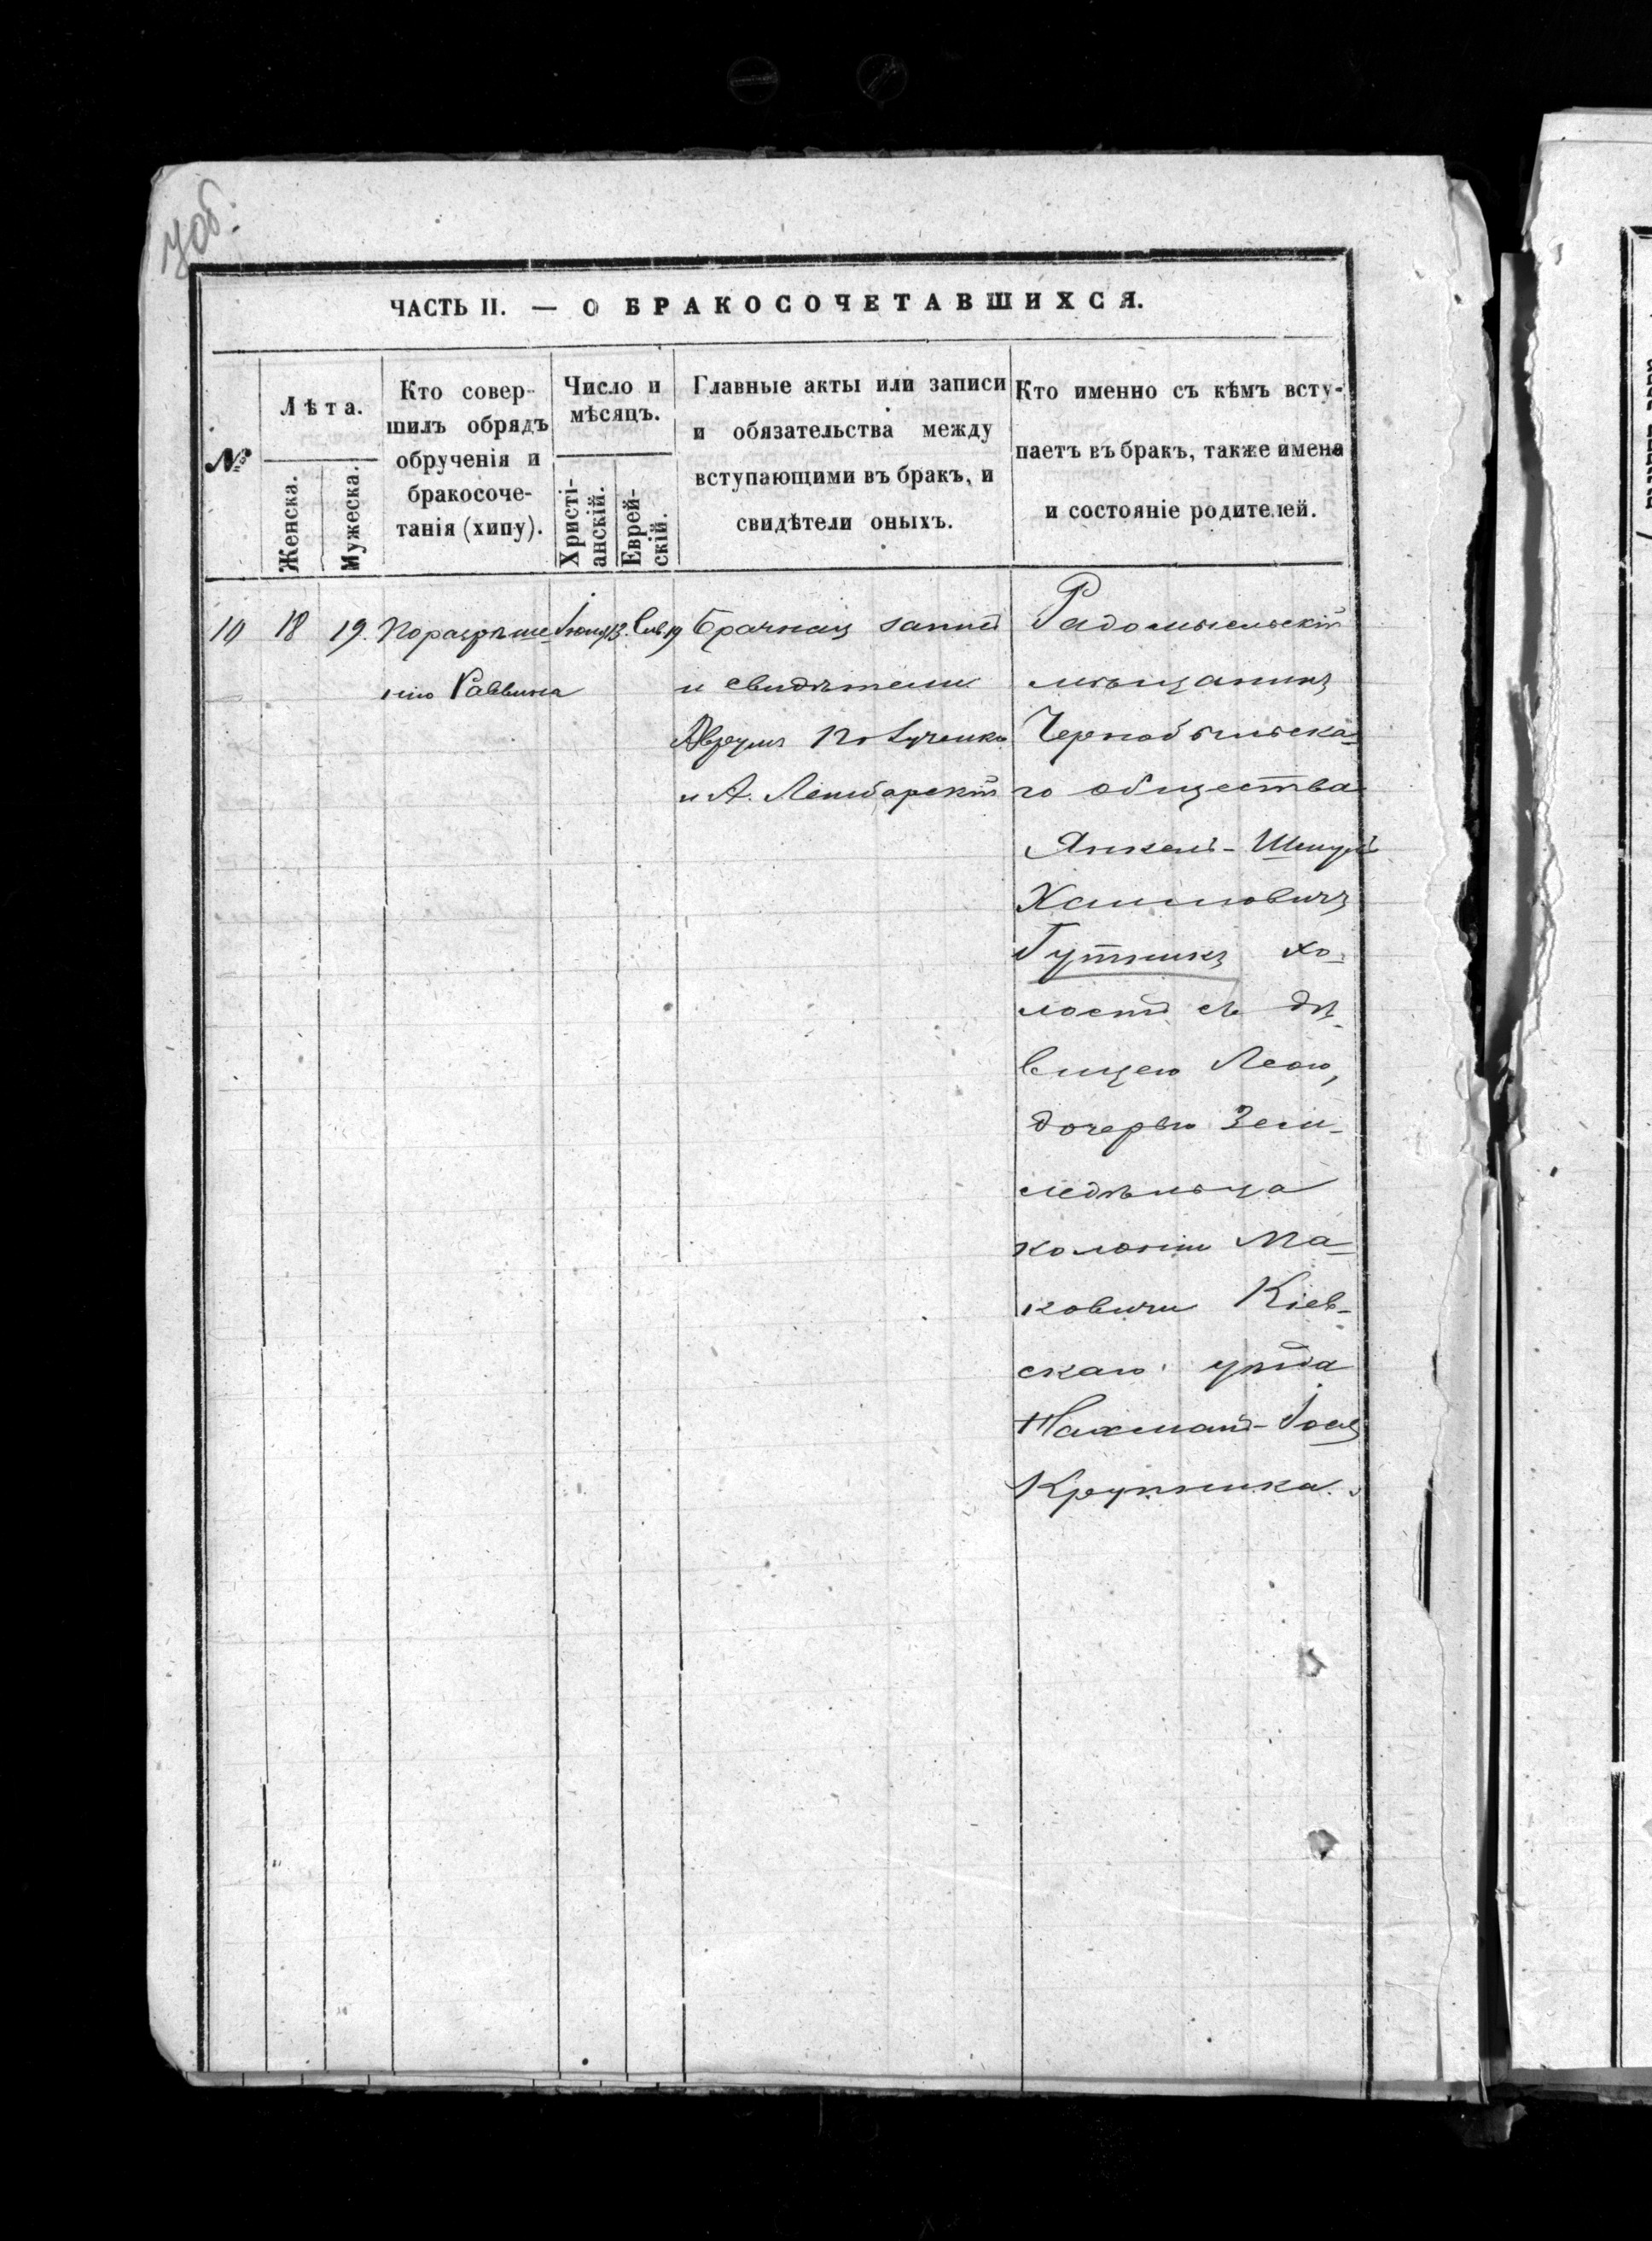 ЧАСТЬ II. — О БРАКОСОЧЕТАВШИХСЯ.
№
Лѣта.
Женска.
Мужеска.
Кто совер-
шилъ обрядъ
обрученія и
бракосоче-
танія (хипу).
Число и
мѣсяцъ.
Христі-
анскій.
Еврей-
скій.
Главные акты или записи
и обязательства между
вступающими въ бракъ, и
свидѣтели оныхъ.
Кто именно съ кѣмъ всту-
паетъ въ бракъ, также имена
и состояніе родителей.
18 19. По разрѣше-
нію Раввина
Брачная запись
и свидѣтели
и А.
Радомысльскій
мѣщанинъ
Чернобыльска-
го общества
Янкель-Шмуль
Хаимовичъ
Гутникъ хо-
лостъ съ дѣ-
вицею Леею,
дочерью Зем-
ледѣльца
колоніи Ма-
ковичи Кіев-
скаго уѣзда
Нахманъ-Іось
Крупника.